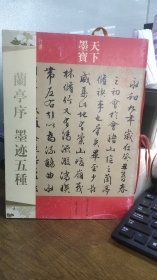 天下
墨寶
永和九年歲在癸丑暮春
之初會于會稽山陰之蘭亭
咸集此地有崇山峻領
林脩竹又有清流激湍暎
帶左右引以為流觴曲
蘭亭序 墨迹五種